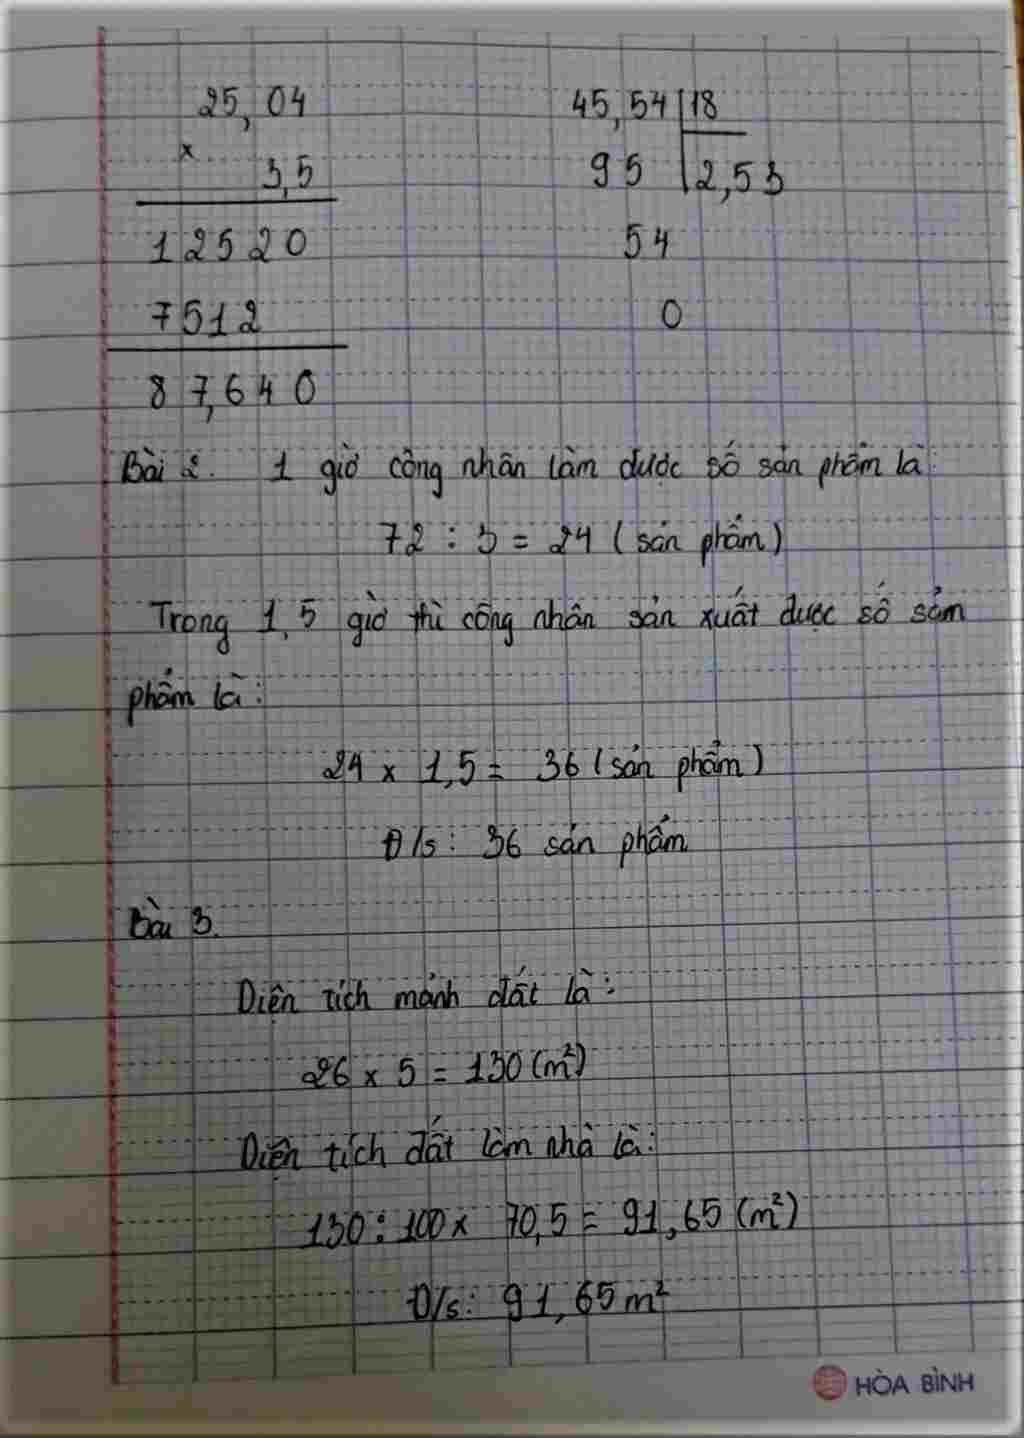 25,04
×
3,5
12520
7512
87,640
45,54 18
95 2,53
54
0
Bài 2. 1 giờ công nhân làm được số sản phẩm là:
72 : 3 = 24 (sản phẩm)
Trong 1,5 giờ thì công nhân sản xuất được số sản
phẩm là:
24 × 1,5 = 36 (sản phẩm)
Đ/s: 36 sản phẩm
Bài 3.
Diện tích mảnh đất là:
26 × 5 = 130 (m²)
Diện tích đất làm nhà là:
130 : 100 × 70,5 = 91,65 (m²)
Đ/s: 91,65 m²
HÒA BÌNH